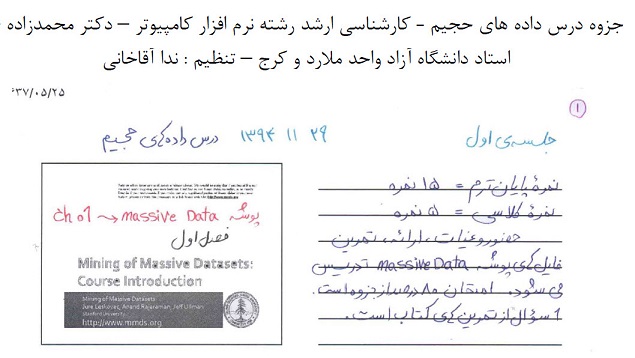 جزوه درس داده های حجیم - کارشناسی ارشد رشته نرم افزار کامپیوتر – دکتر محمدزاده -
استاد دانشگاه آزاد واحد ملارد و کرج – تنظیم : ندا آقاخانی
۶۳۷/۰۵/۲۵
۱
جلسه‌ی اول
۱۳۹۴ ۱۱ ۲۹ درس داده‌های حجیم
نمرهٔ پایان ترم = ۱۵ نمره
نمرهٔ کلاسی = ۵ نمره
حضور و غیاب، ارائه، تمرین
فایل‌های پوشه massive Data تدریس
می شود. امتحان ۸۰ درصد از جزوه است.
۱ سؤال از تمرین های کتاب است.
ch 01 → massive Data پوشه
فصل اول
Mining of Massive Datasets:
Course Introduction
Mining of Massive Datasets
Jure Leskovec, Anand Rajaraman, Jeff Ullman
Stanford University
http://www.mmds.org